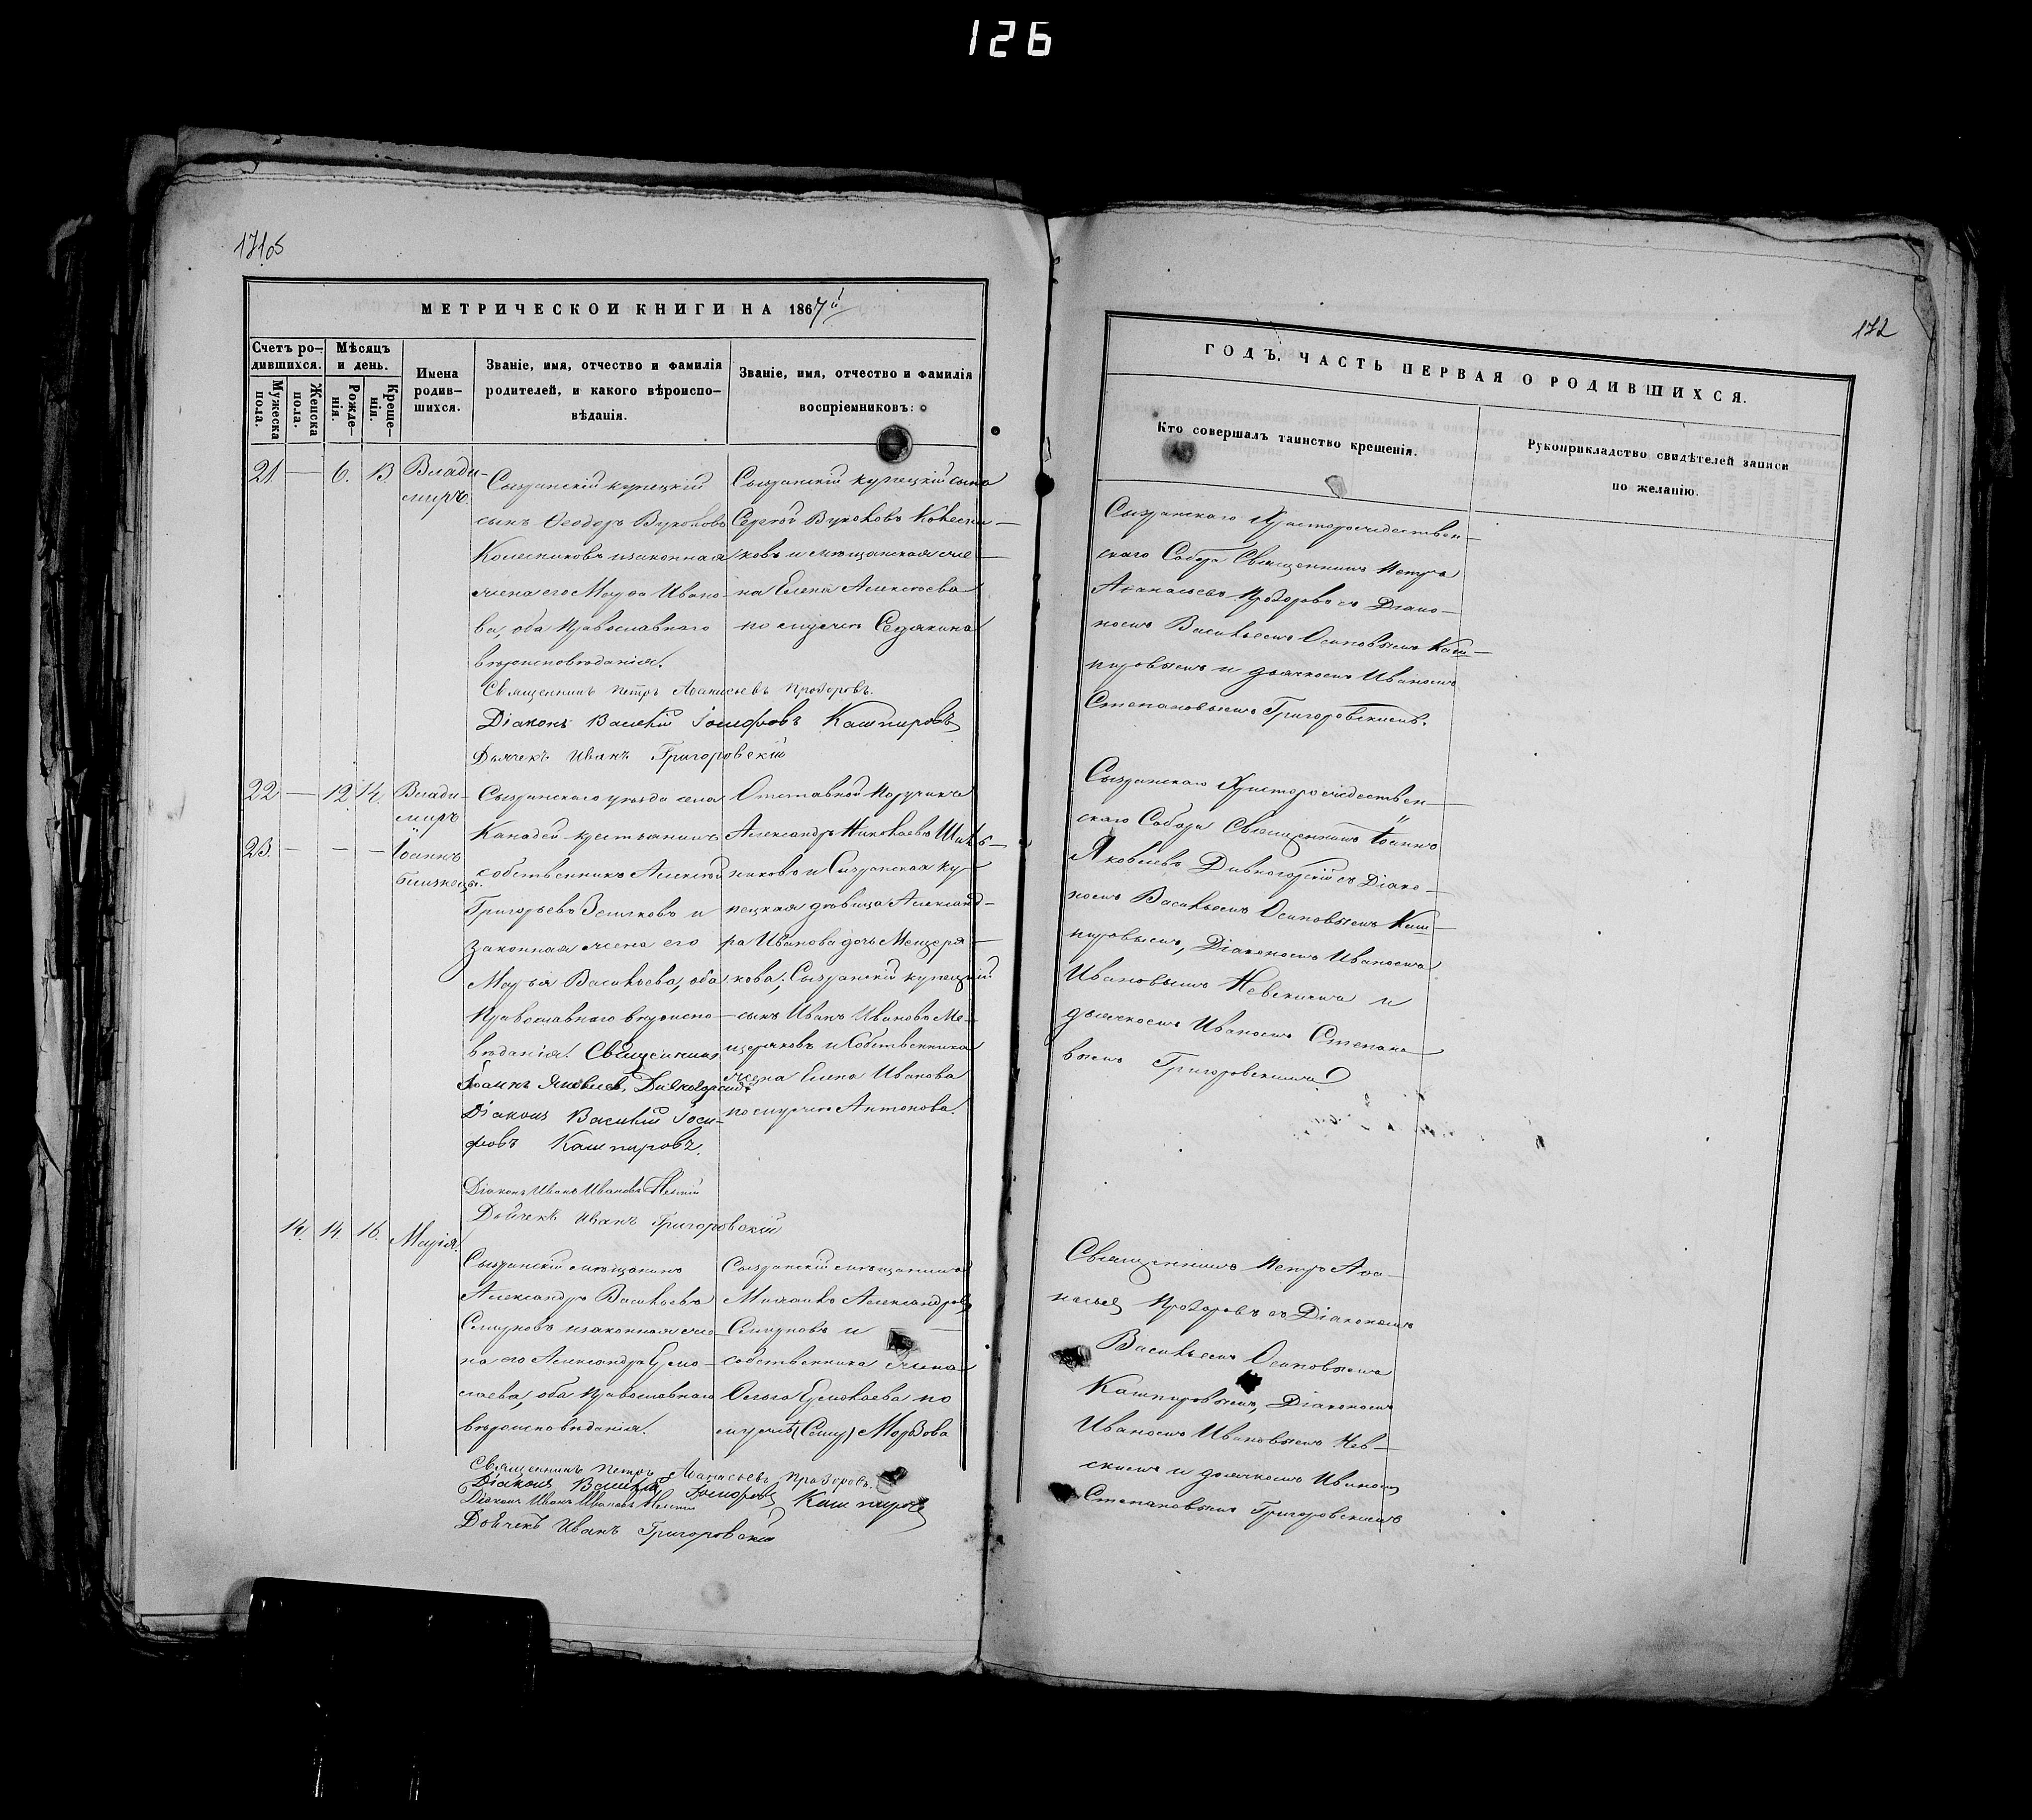 126
171об
МЕТРИЧЕСКОЙ КНИГИ НА 1867й
Счетъ ро-
дившихся.
Мужеска
пола.
Женска
пола.
Мѣсяцъ
и день.
Рожде-
нія.
Креще-
нія.
Имена
родив-
шихся.
Званіе, имя, отчество и фамилія
родителей, и какого вѣроиспо-
вѣданія.
Званіе, имя, отчество и фамилія
воспріемниковъ:
21 — 6. 13 Влади-
миръ
Сызранскій купецкій
сынъ Ѳеодоръ Вуколовъ
Колесниковъ и законная
жена его Марѳа Ивано-
ва, оба Православнаго
вѣроисповѣданія.
Сызранскій купецкій сынъ
Сергѣй Вуколовъ Колесни-
ковъ и мѣщанская же-
на Елена Алексѣева
по мужѣ
Священникъ Петръ Аѳанасьевъ Прозоровъ.
Діаконъ Василій Іосифовъ Кашпировъ
Дьячекъ Иванъ Григоровскій
22 — 12. 14. Влади-
миръ
23. — — — Іоаннъ
близнецы.
Сызранскаго уѣзда села
Канадей крестьянинъ
собственникъ Алексѣй
Григорьевъ Земсковъ и
законная жена его
Марья Васильева, оба
Православнаго вѣроиспо-
вѣданія. Священникъ
Іоаннъ Яковлевъ Дивногорскій
Діаконъ Василій Іоси-
фовъ Кашпировъ.
Діаконъ Иванъ Ивановъ Невскій
Дьячекъ Иванъ Григоровскій
Отставной Поручикъ
Александръ Николаевъ
и Сызранская ку-
пецкая дѣвица Александ-
ра Иванова дочь Мещеря-
кова; Сызранскій купецкій
сынъ Иванъ Ивановъ Ме-
щеряковъ и Собственника
жена Елена Иванова
по мужѣ Антонова.
14. 14. 16. Марія.
Сызранскій мѣщанинъ
Александръ Васильевъ
Смирновъ и законная же-
на его Александра Ермо-
лаева, оба Православнаго
вѣроисповѣданія.
Сызранскій мѣщанинъ
Михаилъ Александровъ
Смирновъ и
собственника жена
Ольга Ермолаева по
мужѣ
Священникъ Петръ Аѳанасьевъ Прозоровъ.
Діаконъ Василій Іосифовъ Кашпировъ
Діаконъ Иванъ Ивановъ Невскій
Дьячекъ Иванъ Григоровскій
172
ГОДЪ, ЧАСТЬ ПЕРВАЯ О РОДИВШИХСЯ.
Кто совершалъ таинство крещенія.
Рукоприкладство свидѣтелей записи
по желанію.
Сызранскаго Христорождествен-
скаго Собора Священникъ Петръ
Аѳанасьевъ Прозоровъ съ Діако-
номъ Васильемъ Осиповымъ Каш-
пировымъ и дьячкомъ Иваномъ
Степановымъ Григоровскимъ.
Сызранскаго Христорождествен-
скаго Собора Священникъ Іоаннъ
Яковлевъ Дивногорскій съ Діако-
номъ Васильемъ Осиповымъ Каш-
пировымъ, Діакономъ Иваномъ
Ивановымъ Невскимъ и
дьячкомъ Иваномъ Степано-
вымъ Григоровскимъ
Священникъ Петръ Аѳа-
насьевъ Прозоровъ съ Діакономъ
Васильемъ Осиповымъ
Кашпировымъ, Діакономъ
Иваномъ Ивановымъ Нев-
скимъ и дьячкомъ Иваномъ
Степановымъ Григоровскимъ